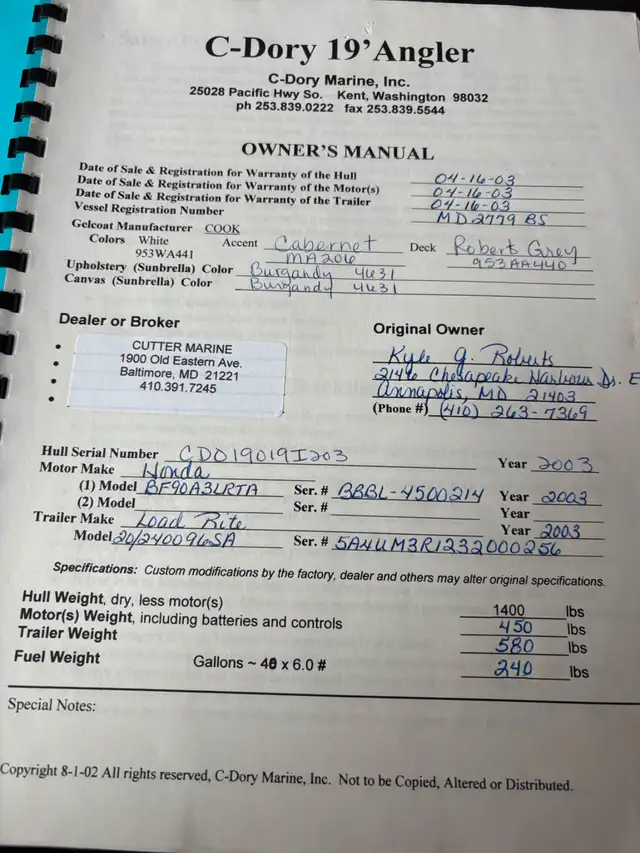 C-Dory 19' Angler
C-Dory Marine, Inc.
25028 Pacific Hwy So. Kent, Washington 98032
ph 253.839.0222 fax 253.839.5544
OWNER'S MANUAL
Date of Sale & Registration for Warranty of the Hull 04-16-03
Date of Sale & Registration for Warranty of the Motor(s) 04-16-03
Date of Sale & Registration for Warranty of the Trailer 04-16-03
Vessel Registration Number MD 2779 BS
Gelcoat Manufacturer COOK
Colors White Accent Cabernet Deck Robert Grey
953WA441 MA206 953AA440
Upholstery (Sunbrella) Color Burgandy 4631
Canvas (Sunbrella) Color Burgandy 4631
Dealer or Broker
CUTTER MARINE
1900 Old Eastern Ave.
Baltimore, MD 21221
410.391.7245
Original Owner
Kyle G. Roberts
2146 Chesapeake Harbour Dr. E
Annapolis, MD 21403
(Phone #) (410) 263-7369
Hull Serial Number CDO19019I203 Year 2003
Motor Make Honda
(1) Model BF90A3LRTA Ser. # BBBL-4500214 Year 2003
(2) Model Ser. # Year
Trailer Make Load Rite Year 2003
Model 20/240096SA Ser. # 5A4UM3R1232000256
Specifications: Custom modifications by the factory, dealer and others may alter original specifications.
Hull Weight, dry, less motor(s) 1400 lbs
Motor(s) Weight, including batteries and controls 450 lbs
Trailer Weight 580 lbs
Fuel Weight Gallons ~ 40 x 6.0 # 240 lbs
Special Notes:
Copyright 8-1-02 All rights reserved, C-Dory Marine, Inc. Not to be Copied, Altered or Distributed.